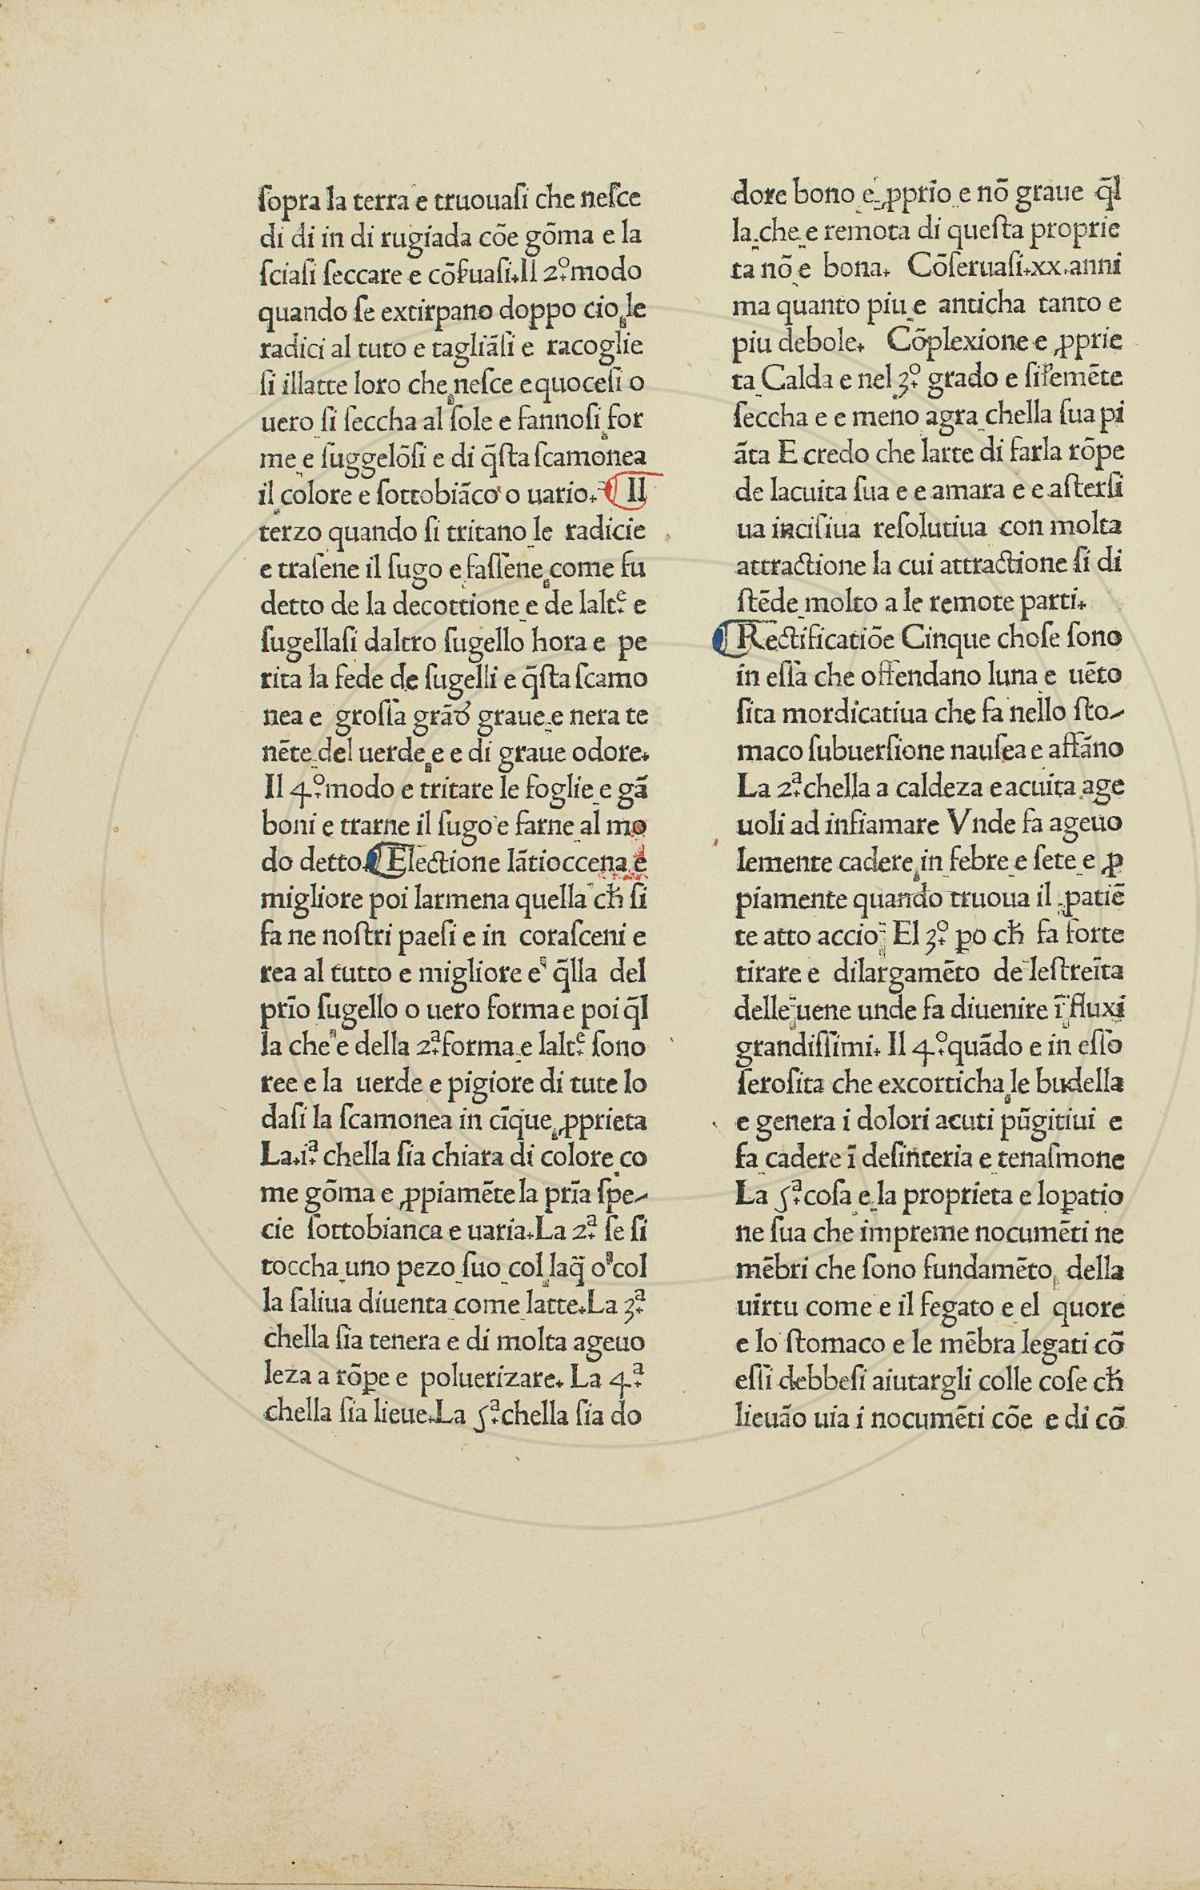 ſopra la terra e truouaſi che neſce
di di in di rugiada cōe gōma e la
ſciaſi ſeccare e cōẜuaſi.Il 2°.modo
quando ſe extirpano doppo cio le
radici al tuto e tagliāſi e racoglie
ſi illatte loro che neſce e quoceſi o
uero ſi ſeccha al ſole e fannoſi for
me e ſuggelōſi e di q̄ſta ſcamonea
il colore e ſottobiāco o uario. Il
terzo quando ſi tritano le radicie
e traſene il ſugo e faſſene come fu
detto de la decottione e de laltͤ. e
ſugellaſi daltro ſugello hora e pe
rita la fede de ſugelli e q̄ſta ſcamo
nea e groſſa grāď graue e nera te
nēte del uerde e e di graue odore.
Il 4°.modo e tritare le foglie e gā
boni e trarne il ſugo e farne al mo
do detto. Electione lātioccena e
migliore poi larmena quella cħ ſi
fa ne noſtri paeſi e in coraſceni e
rea al tutto e migliore e q̄lla del
prīo ſugello o uero forma e poi q̄l
la che e della 2ª.forma e laltͤ. ſono
ree e la uerde e pigiore di tute lo
daſi la ſcamonea in cīque ꝓprieta
La.iª. chella ſia chiara di colore co
me gōma e ꝓpiamēte la prīa ſpe-
cie ſottobianca e uaria.La 2ª. ſe ſi
toccha uno pezo ſuo col laq̄ o col
la ſaliua diuenta come latte.La 3ª.
chella ſia tenera e di molta ageuo
leza a rōꝑe e poluerizare. La 4ª.
chella ſia lieue.La 5ª.chella ſia do
dore bono e ꝓprīo e nō graue q̄l
la che e remota di queſta proprie
ta nō e bona. Cōſeruaſi.xx.anni
ma quanto piu e anticha tanto e
piu debole. Cōplexione e ꝓprie
ta Calda e nel 3°. grado e ſiẜemēte
ſeccha e e meno agra chella ſua pi
āta E credo che larte di farla rōpe
de lacuita ſua e e amara e e aſterſi
ua inciſiua reſolutiua con molta
attractione la cui attractione ſi di
ſtēde molto a le remote parti.
Rectificatiōe Cinque choſe ſono
in eſſa che offendano luna e uēto
ſita mordicatiua che fa nello ſto-
maco ſubuerſione nauſea e affāno
La 2ª.chella a caldeza e acuita age
uoli ad infiamare Vnde fa ageuo
lemente cadere in febre e ſete e ꝓ
piamente quando truoua il patiē
te atto accio El 3°. ꝑo cħ fa forte
tirare e dilargamēto de leſtreīta
delle uene unde fa diuenire ī fluxi
grandiſſimi. Il 4°.quādo e in eſſo
ſeroſita che excorticha le budella
e genera i dolori acuti pūgitiui e
fa cadere ī deſinteria e tenaſmone
La 5ª.coſa e la proprieta e loꝑatio
ne ſua che impreme nocumēti ne
mēbri che ſono fundamēto della
uirtu come e il fegato e el quore
e lo ſtomaco e le mēbra legati cō
eſſi debbeſi aiutargli colle coſe cħ
lieuāo uia i nocumēti cōe e di cō